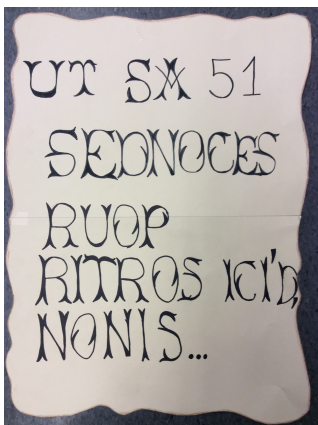 UT SA 51
SEDNOCES
RUOP
RITROS ICI'D,
NONIS...